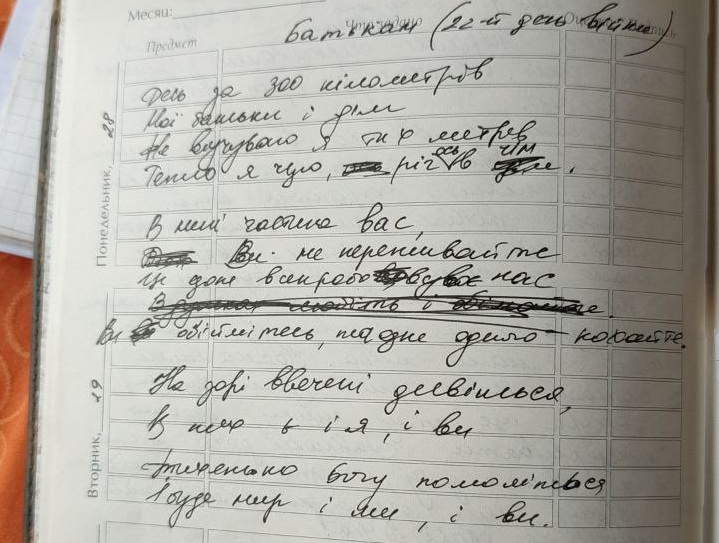 Месяц:
Что задано
Предмет
Батькам (22-й день війни)
Понедельник, 28
Десь за 300 кілометрів
Мої батьки і дім
Не відчуваю я тих метрів
Тепло я чую, ріг ось в чім.
В мені частина вас,
Ви не переживайте
Ця доля випробовує нас
Ви обіймітесь, та одне одного кохайте.
Вторник, 29
На зорі ввечері дивіться,
В них є і я, і ви
Тихенько Богу помоліться
І буде мир і ми, і ви.